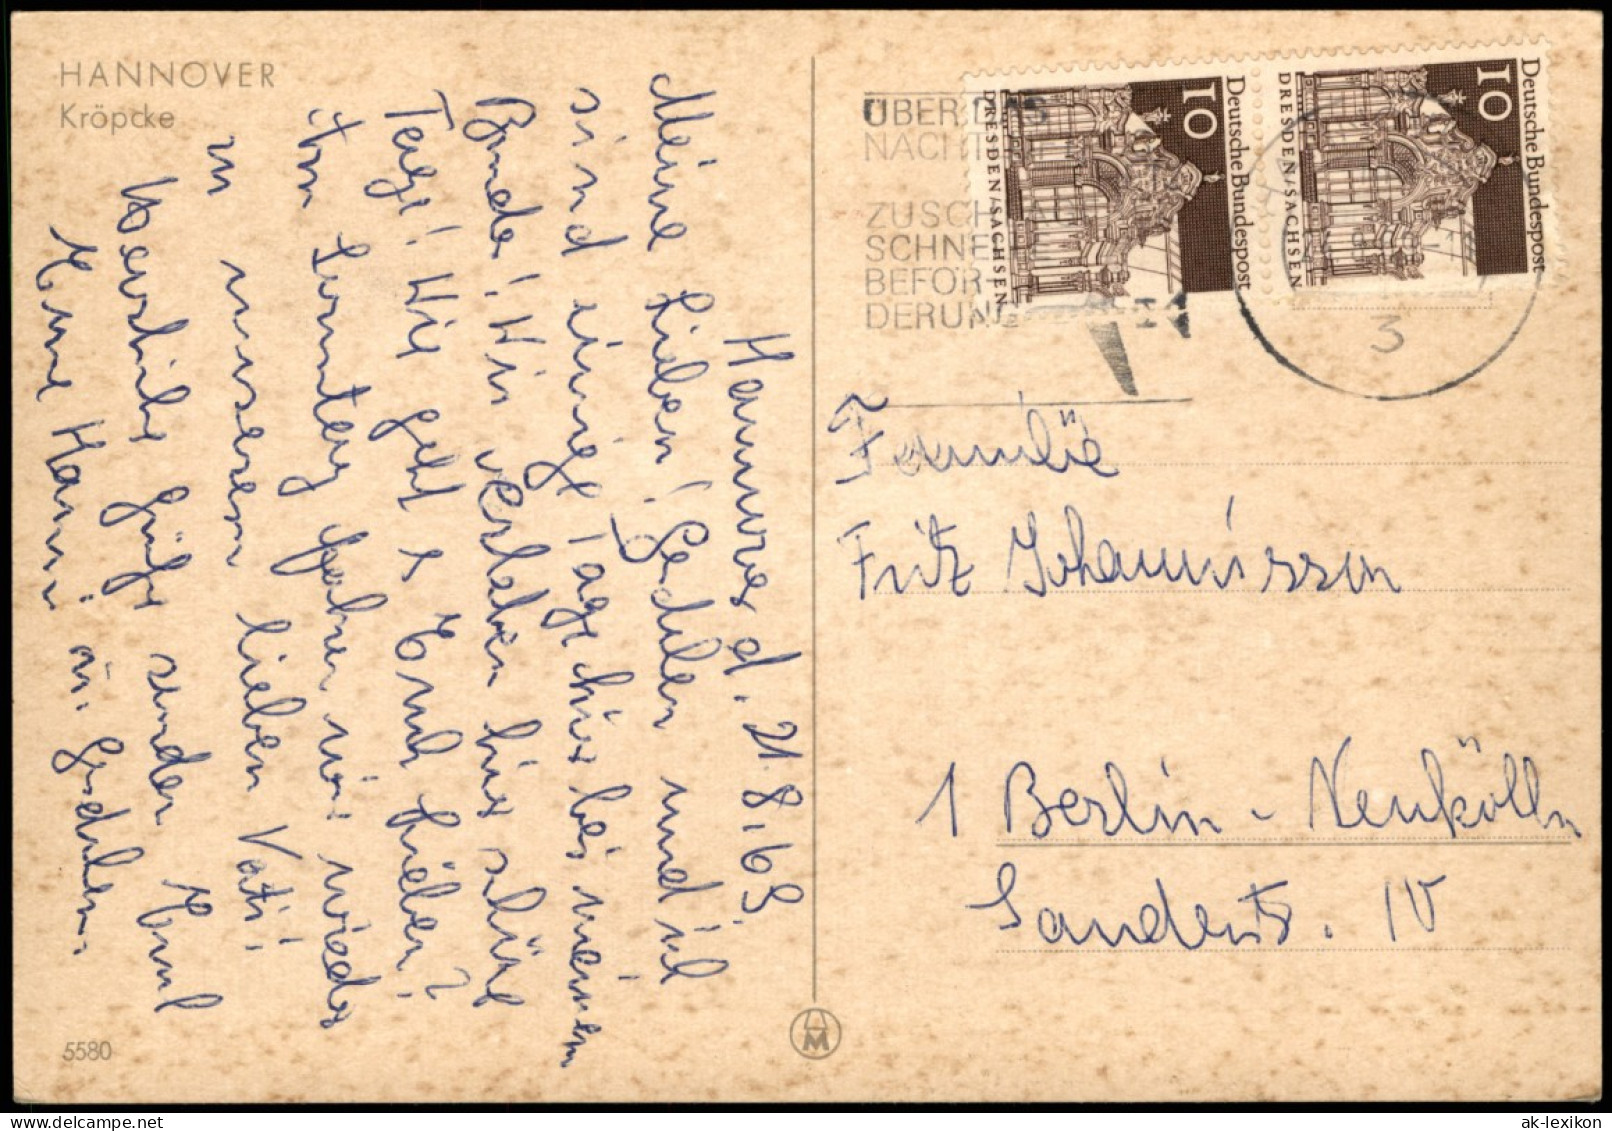 HANNOVER
Kröpcke
Hannover d. 21.8.69.
Meine Lieben! Gerda und ich
sind einige Tage hier bei meinem
Bruder! Wir verleben hier schöne
Tage! Wie geht es Euch Lieben?
Am Sonntag fahren wir wieder
zu unserem lieben Vati!
Herzliche Grüße sendet Euch
Eure Hanni u.
5580
ÜBER DAS
NACHT
ZUSCH
SCHNE
BEFÖR
DERUNG
3
10
Deutsche Bundespost
DRESDEN/SACHSEN
10
Deutsche Bundespost
DRESDEN/SACHSEN
Familie
Fritz Johannisson
1 Berlin-Neukölln
Sanderstr. 10
ak-lexikon